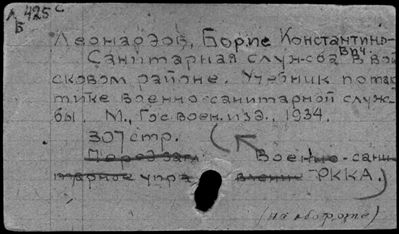 А 425 с
Б
Леонардов, Борис Константино-
вич.
Санитарная служба в вой
сковом районе. Учебник по так
тике военно-санитарной служ
бы. М., Гос.воен.изд., 1934.
307 стр.
Перед заг. Военно-сани
тарное упра влении РККА.)
(на обороте)